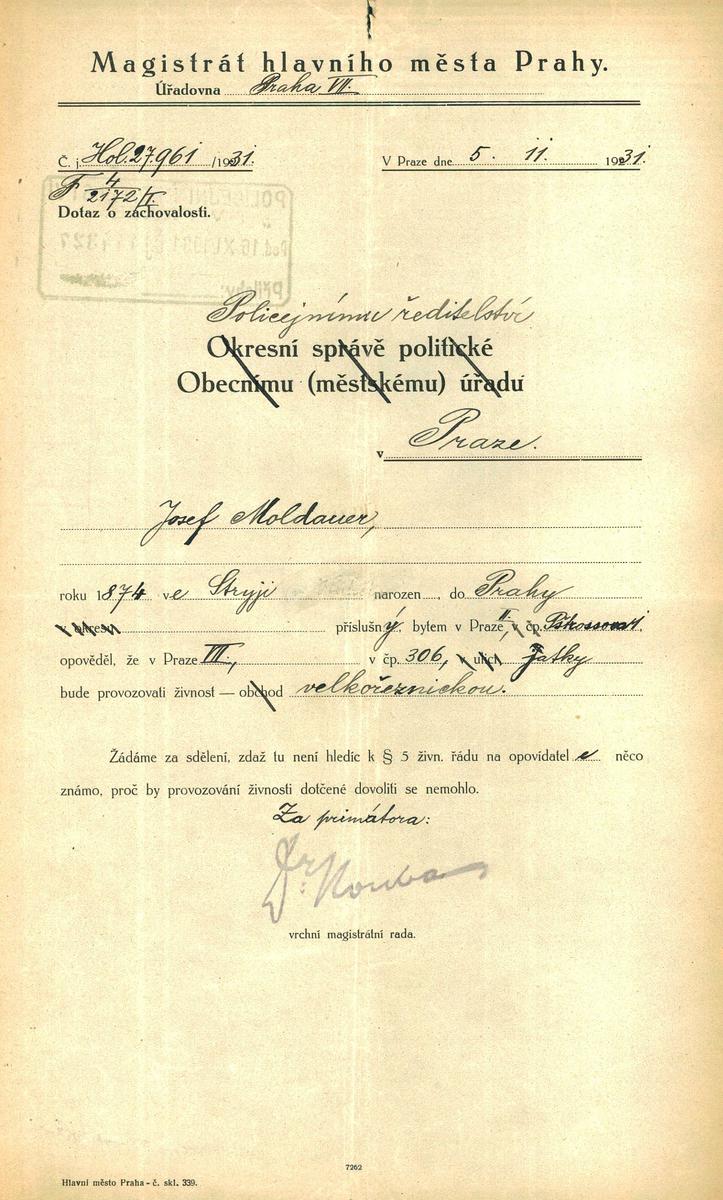 Magistrát hlavního města Prahy.
Úřadovna Praha VII.
Č. j. Hol. 27.961 /1931. V Praze dne 5. 11. 1931.
F 4/2172/I.
Dotaz o zachovalosti.
Policejnímu ředitelství
Okresní správě politické
Obecnímu (městskému) úřadu
v Praze.
Josef Moldauer,
roku 1874 ve Stryji narozen, do Prahy
v okresu příslušný, bytem v Praze II., v čp.
opověděl, že v Praze VII., v čp. 306, v ulici Jatky
bude provozovati živnost — obchod velkořeznickou.
Žádáme za sdělení, zdaž tu není hledíc k § 5 živn. řádu na opovídatele něco
známo, proč by provozování živnosti dotčené dovoliti se nemohlo.
Za primátora:
Dr. Kouba
vrchní magistrátní rada.
7262
Hlavní město Praha - č. skl. 339.